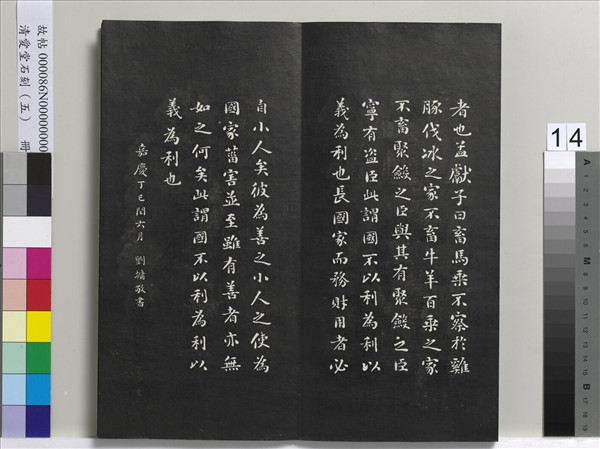 者也孟獻子曰畜馬乘不察於雞
豚伐冰之家不畜牛羊百乘之家
不畜聚斂之臣與其有聚斂之臣
寧有盜臣此謂國不以利為利以
義為利也長國家而務財用者必
自小人矣彼為善之小人之使為
國家菑害並至雖有善者亦無
如之何矣此謂國不以利為利以
義為利也
嘉慶丁巳閏六月 劉墉敬書
故帖000086N000000000
清愛堂石刻（五） 冊
14